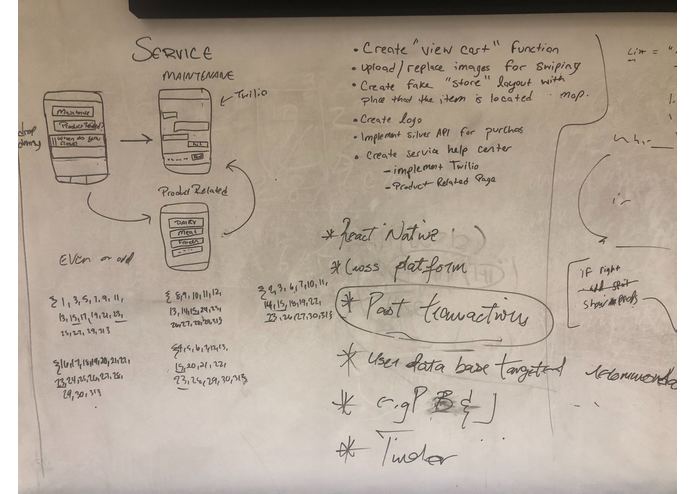 SERVICE
MAINTENANE
Twilio
Product Related?
Product Related
DAIRY
Meat
EVEN or odd
{ 1, 3, 5, 7, 9, 11,
13, 15, 17, 19, 21, 23,
25, 27, 29, 31}
{ 8, 9, 10, 11, 12,
13, 14, 15, 24, 25,
26, 27, 28, 29, 31}
{ 2, 3, 6, 7, 10, 11,
14, 15, 18, 19, 22,
23, 26, 27, 30, 31}
{16, 17, 18, 19, 20, 21, 22,
23, 24, 25, 26, 27, 28,
29, 30, 31}
{4, 5, 6, 7, 12, 13,
15, 20, 21, 22,
23, 28, 29, 30, 31}
• Create "view cart" Function
• Upload/replace images for swiping
• Create fake "store" layout with
place that the item is located - map.
• Create logo
• Implement Silver API for purchas
• Create service help center
- implement Twilio
- Product Related Page
* React Native
* Cross platform
* Past transactions
* User data base targeted
* e.g P B & J
* Tinder
List = "
if right